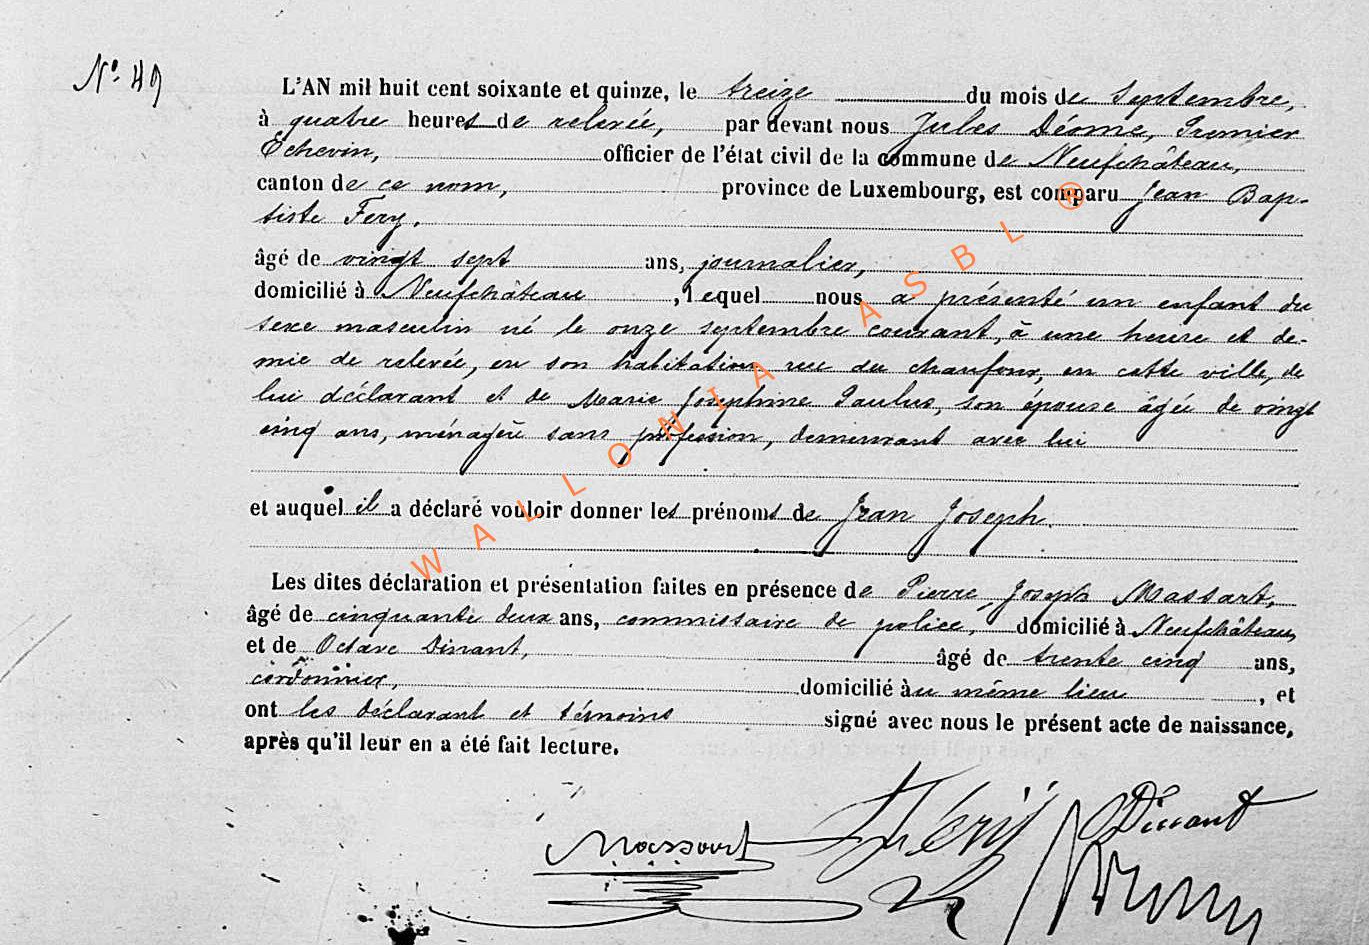 N° 49
L'AN mil huit cent soixante et quinze, le treize du mois de Septembre,
à quatre heures de relevée, par devant nous Jules Déome, Premier
Echevin, officier de l'état civil de la commune de Neufchâteau,
canton de ce nom, province de Luxembourg, est comparu Jean Bap-
tiste Fery,
âgé de vingt sept ans, journalier,
domicilié à Neufchâteau, lequel nous a présenté un enfant du
sexe masculin né le onze septembre courant, à une heure et de-
mie de relevée, en son habitation rue du chaufour, en cette ville, de
lui déclarant et de Marie Josephine Paulus, son épouse âgée de vingt
cinq ans, ménagère sans profession, demeurant avec lui
et auquel il a déclaré vouloir donner les prénoms de Jean Joseph.
Les dites déclaration et présentation faites en présence de Pierre Joseph Massart,
âgé de cinquante deux ans, commissaire de police, domicilié à Neufchâteau,
et de Octave Dinant, âgé de trente cinq ans,
cordonnier, domicilié au même lieu, et
ont les déclarant et témoins signé avec nous le présent acte de naissance,
après qu'il leur en a été fait lecture.
Massart Dinant
WALLONIA ASBL ®